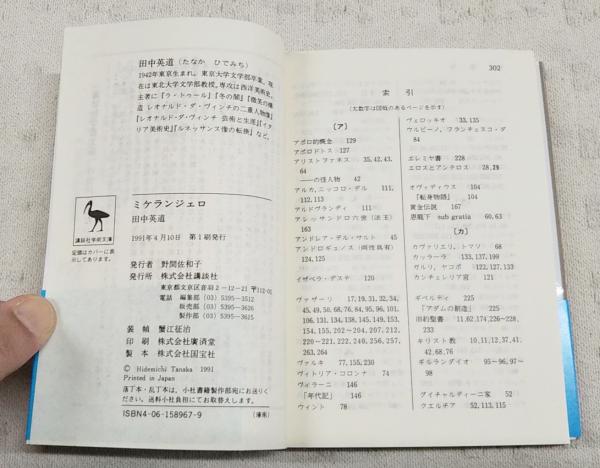 田中英道(たなか ひでみち)
1942年東京生まれ。東京大学文学部卒業。現
在は東北大学文学部教授。専攻は西洋美術史。
主著に『ラ・トゥール』『冬の闇』『微笑の構
道 レオナルド・ダ・ヴィンチの二重人物像』
『レオナルド・ダ・ヴィンチ 芸術と生涯』『イタ
リア美術史』『ルネッサンス像の転換』など。
講談社学術文庫
定価はカバーに表
示してあります。
ミケランジェロ
田中英道
1991年4月10日 第1刷発行
発行者 野間佐和子
発行所 株式会社講談社
東京都文京区音羽2-12-21 〒112-01
電話 編集部 (03) 5395-3512
販売部 (03) 5395-3622
製作部 (03) 5395-3615
装幀 蟹江征治
印刷 株式会社廣済堂
製本 株式会社国宝社
© Hidemichi Tanaka 1991
Printed in Japan
落丁本・乱丁本は、小社書籍製作部宛にお送りく
ださい。送料小社負担にてお取替えします。
ISBN4-06-158967-9 (庫術)
302
索引
(太数字は図版のあるページを示す)
〔ア〕
アポロ的概念 129
アポロドトス 127
アリストファネス 35,42,43,
64
——の怪人物 42
アルカ,ニッコロ・デル 111,
112,113
アルドヴランディ 111
アレッサンドロ六世(法王)
163
アンドレア・デル・サルト 45
アンドロギュノス(両性具有)
124,125
イザベラ・デステ 120
ヴァザーリ 17,19,31,32,34,
45,49,50,68,76,84,95,96,101,
106,131,134,138,145,149,153,
154,155,202~204,207,212,
220~221,222,240,256,257,
263,264
ヴァルキ 77,155,230
ヴィトリア・コロンナ 74
ヴィラーニ 146
『年代記』 146
ウィント 78
ヴェロッキオ 33,135
ウルビーノ,フランチェスコ・ダ
84
エレミヤ書 228
エロスとアンテロス 28,29
オヴィディウス 104
『転身物語』 104
黄金伝説 167
恩寵下 sub gratia 60,63
〔カ〕
カヴァリエリ,トマソ 68
カッラーラ 133,137,199
ガルリ,ヤコポ 122,127,133
カンチェレリア宮 121
ギベルディ 215
『アダムの創造』 215
旧約聖書 11,62,174,226~228,
233
キリスト教 10,11,12,37,41,
42,68,76
ギルランダイオ 95~96,97~
98
グイチャルディーニ家 52
クエルチア 52,113,115